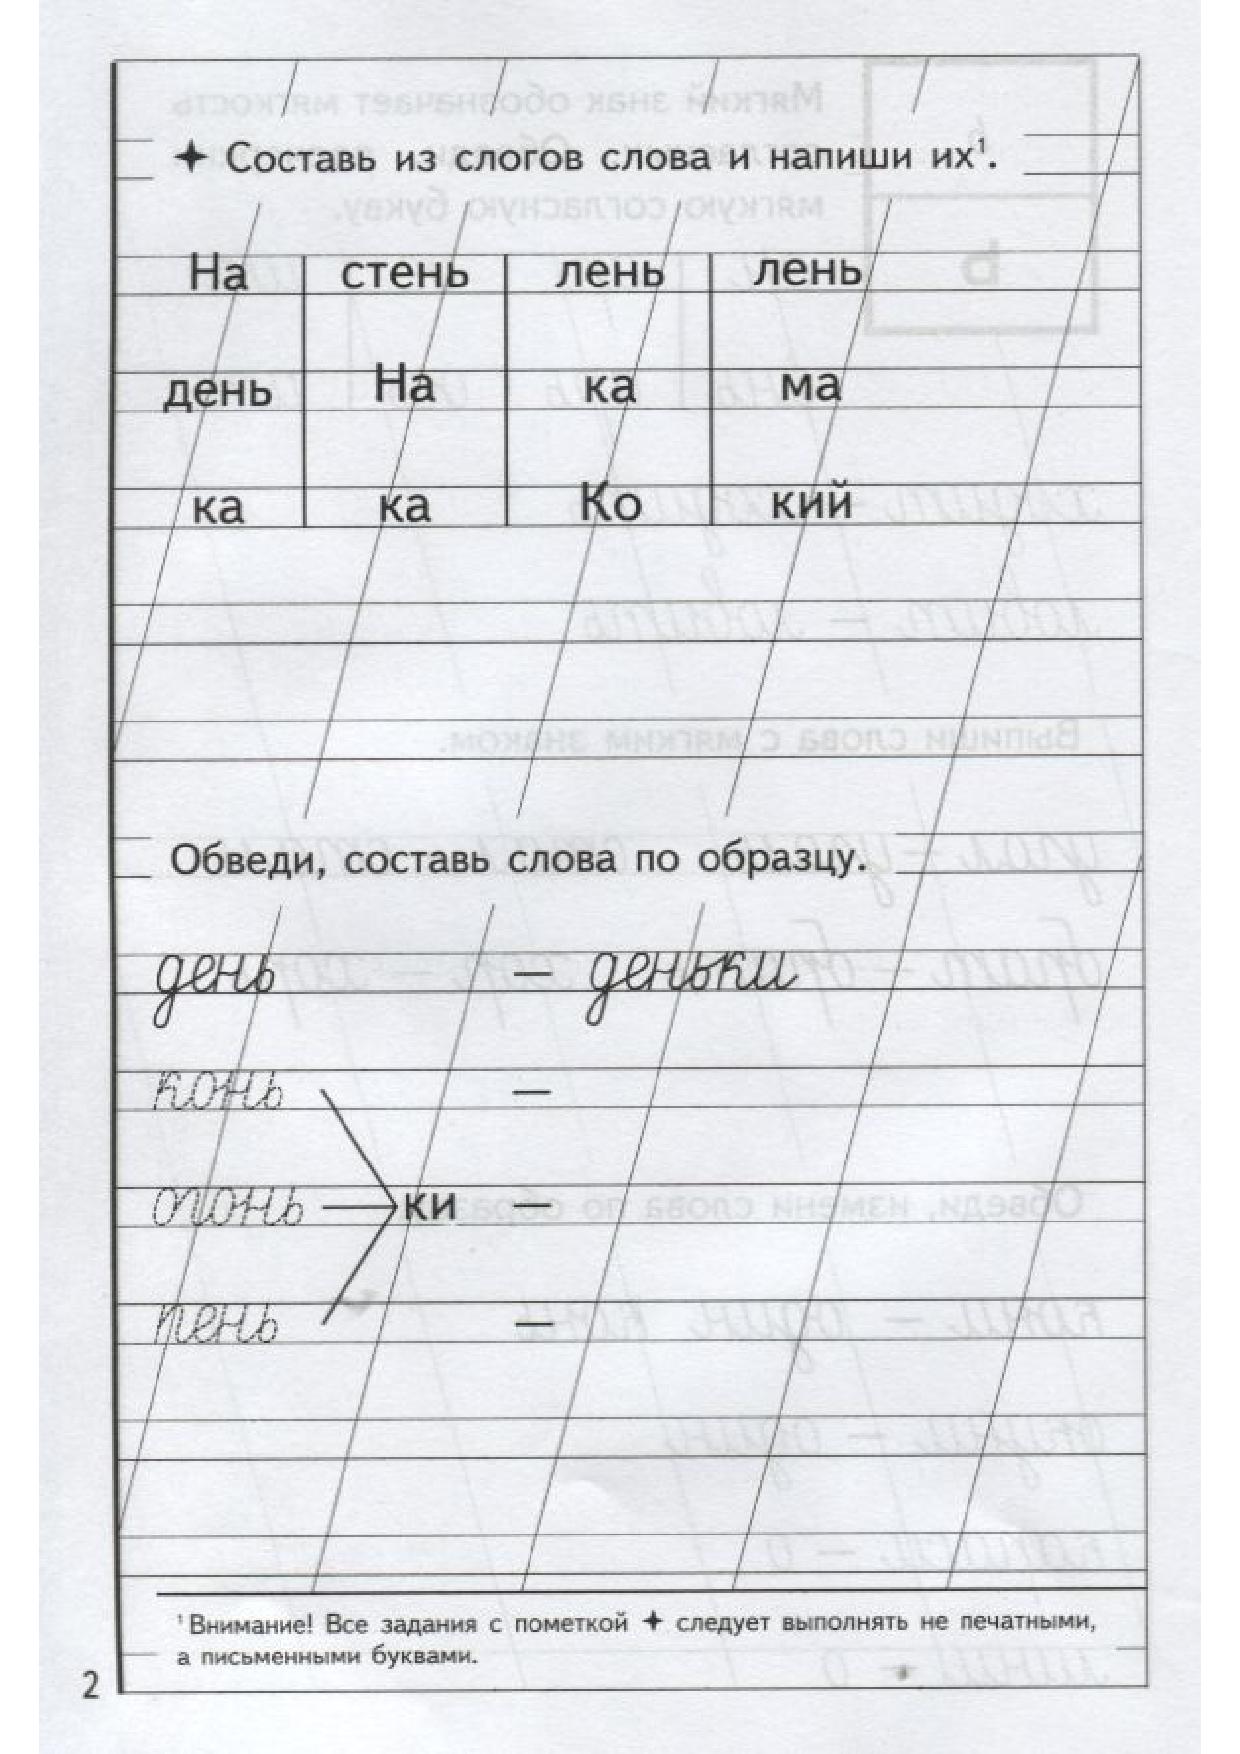 ✦ Составь из слогов слова и напиши их¹.
На стень лень лень
день На ка ма
ка ка Ко кий
Обведи, составь слова по образцу.
день — деньки
конь —
огонь ки —
пень —
¹ Внимание! Все задания с пометкой ✦ следует выполнять не печатными,
а письменными буквами.
2